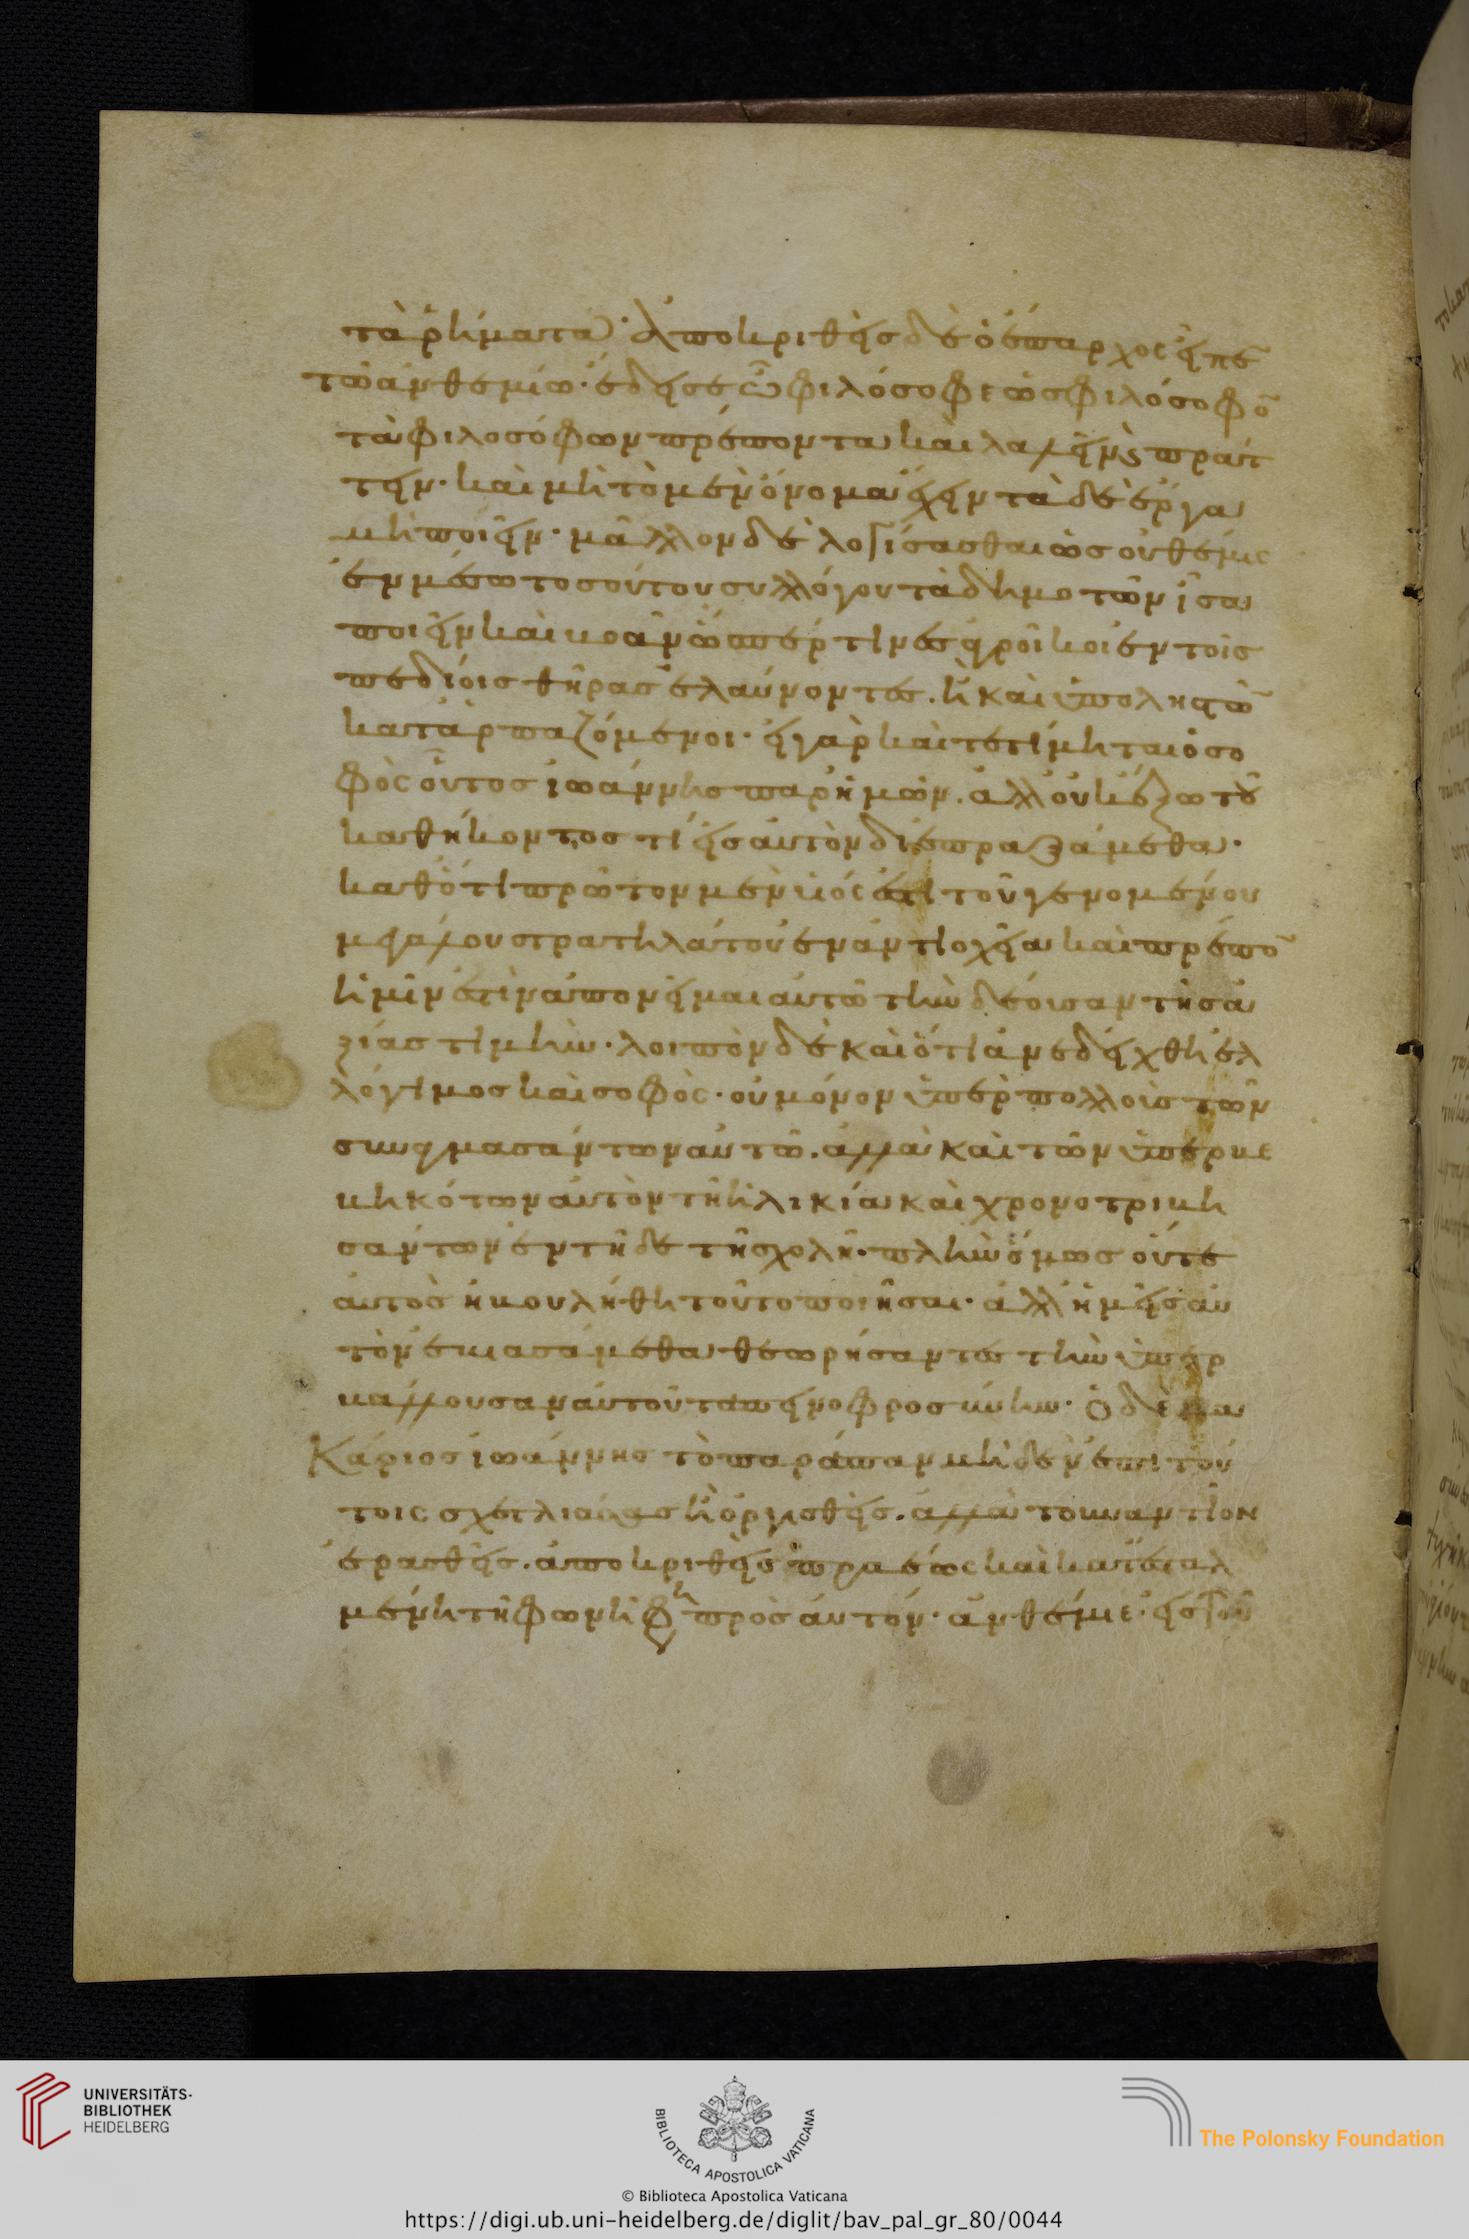 τὰ ῥήματα· Ἀποκριθεὶς δὲ ὁ ἔπαρχος εἶπε
τῶ ἀνθεμίω· ἔδει σε ὦ φιλόσοφε ὡς φιλόσοφο̅
τὰ φιλοσόφων πρέποντα καὶ λαλεῖν ϗ πράτ
τειν· καὶ μὴ τὸ μὲν ὄνομα ἔχειν τὰ δὲ ἔργα
μὴ ποιεῖν· μᾶλλον δὲ λογίσασθαι ὡς οὐ θέμις
ἐν μέσω τοσούτου συλλόγου τὰ δημοτῶν ἴσα
ποιεῖν καὶ βοᾶν ὥσπέρ τινες ἀγροῖκοι ἐν τοῖς
πεδίοις θῆρας ἐλαύνοντες. ἢ καὶ ὑπὸ ληστῶ̅
καταρπαζόμενοι· εἰ γὰρ καὶ τετίμηται ὁ σο
φὸς οὗτος ἰωάννης παρ' ἡμῶν. ἀλλ' οὐκ ἔξω τοῦ
καθήκοντος τί εἰς αὐτὸν διεπραξάμεθα·
καθότι πρῶτον μὲν υἱός ἐστι τοῦ γενομένου
μεγάλου στρατηλάτου ἐν ἀντιοχεία καὶ πρέπο̅
ἡμῖν ἐστὶν ἀπονεῖμαι αὐτῶ τὴν δέουσαν τῆς ἀ
ξίας τιμήν· λοιπὸν δὲ καὶ ὅτι ἀνεδείχθη ἐλ
λόγιμος καὶ σοφός· οὐ μόνον ὑπὲρ πολλοὺς τῶν
συμμασάντων αὐτῶ. ἀλλὰ καὶ τῶν ὑπερβε
βηκότων αὐτὸν τῆ ἡλικία καὶ χρονοτριβη
σάντων ἐν τῆδε τῆ σχολῆ· πλὴν ὅμως οὔτε
αὐτὸς ἠβουλήθη τοῦτο ποιῆσαι· ἀλλ' ἡμεῖς αὐ
τὸν ἐβιασάμεθα θεωρήσαντες τὴν ὑπερ
βάλλουσαν αὐτοῦ ταπεινοφροσύνην· ὁ δὲ μα
Κάριος ἰωάννης τὸ παράπαν μηδὲν ἐπὶ τού
τοις σχετλιάσας ἢ ὀργισθείς. ἀλλὰ τουναντίον
ἐρασθείς. ἀποκριθεὶς πραέως καὶ κατεσταλ
μένη τῆ φωνῆ ἔφη πρὸς αὐτόν· ἀνθέμιε· εἰς τοῦ
UNIVERSITÄTS-
BIBLIOTHEK
HEIDELBERG
BIBLIOTECA APOSTOLICA VATICANA
The Polonsky Foundation
© Biblioteca Apostolica Vaticana
https://digi.ub.uni-heidelberg.de/diglit/bav_pal_gr_80/0044